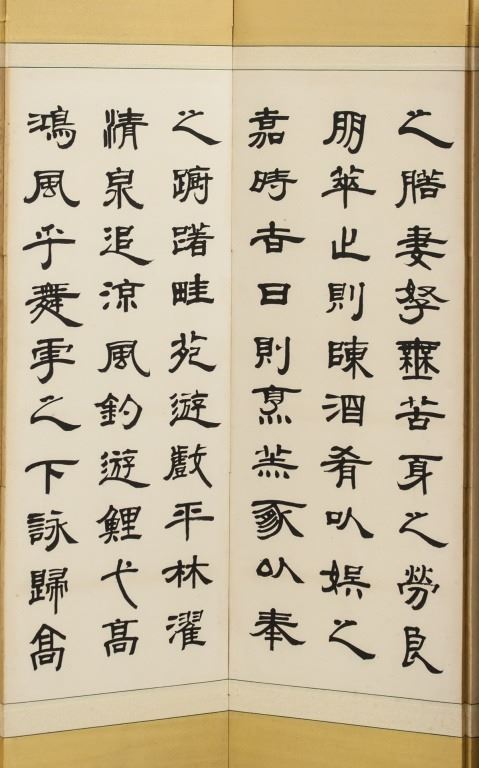 之膳妻孥無苦身之勞良
朋萃止則陳酒肴以娛之
嘉時吉日則烹羔豚以奉
之躕躇畦苑遊戲平林濯
清泉追涼風釣遊鯉弋高
鴻風乎舞雩之下詠歸高